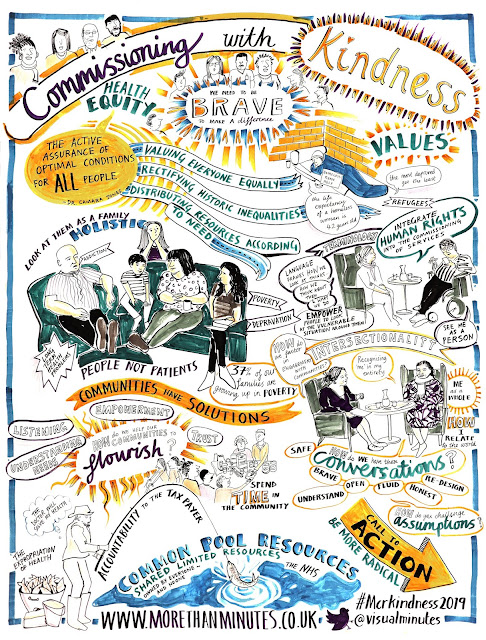 Commissioning
with
Kindness
HEALTH
EQUITY
WE NEED TO BE
BRAVE
TO MAKE A DIFFERENCE
VALUES
THE ACTIVE
ASSURANCE OF
OPTIMAL CONDITIONS
FOR ALL PEOPLE
- DR. CAMARA JONES
VALUING EVERYONE EQUALLY
RECTIFYING HISTORIC INEQUALITIES
DISTRIBUTING RESOURCES ACCORDING
TO NEED
the life
expectancy
of a homeless
woman is
42 years old
REFUGEES
TERMINOLOGY
INTEGRATE
HUMAN RIGHTS
INTO THE COMMISSIONING
OF SERVICES
LOOK AT THEM AS A FAMILY
HOLISTIC
LANGUAGE
EMPOWER
SEE ME
AS A
PERSON
POVERTY
DEPRAVATION
INTERSECTIONALITY
PEOPLE NOT PATIENTS
37% of our
families are
growing up in POVERTY
HOW do
we factor
in
Recognising
me in my
entirety
ME
AS A
WHOLE
HOW
I
RELATE
to the world
COMMUNITIES HAVE SOLUTIONS
EMPOWERMENT
LISTENING
UNDERSTANDING
NEEDS
HOW do we help our
COMMUNITIES to
flourish
TRUST
SPEND
TIME IN
THE COMMUNITY
HOW do WE have these
Conversations?
SAFE
BRAVE
OPEN
FLUID
HONEST
RE-DESIGN
UNDERSTAND
HOW do you challenge
assumptions?
THE
EXPROPRIATION
OF HEALTH
ACCOUNTABILITY TO THE TAX PAYER
COMMON POOL RESOURCES
SHARED LIMITED RESOURCES
OWNED BY EVERYONE
AND NO ONE
THE NHS
CALL TO
ACTION
BE MORE RADICAL
#Mcrkindness2019
@visualminutes
WWW.MORETHANMINUTES.CO.UK